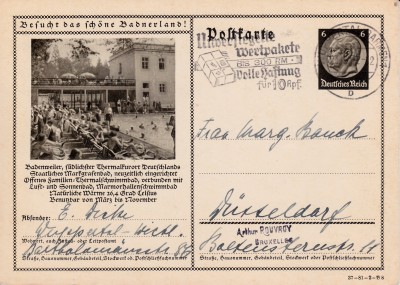 Besucht das schöne Badnerland!
Postkarte
Unversiegelte
Wertpakete
BIS 500 RM
Volle Haftung
für 10 Rpf.
6 6
Deutsches Reich
D
Badenweiler, südlichster Thermalkurort Deutschlands
Staatliches Markgrafenbad, neuzeitlich eingerichtet
Offenes Familien-Thermalschwimmbad, verbunden mit
Luft- und Sonnenbad, Marmorhallenschwimmbad
Natürliche Wärme 26,4 Grad Celsius
Benutzbar von März bis November
Absender: E.
Wuppertal
Wohnort, auch Zustell- oder Leitpostamt
Bartholomäusstr.
Straße, Hausnummer, Gebäudeteil, Stockwerk od. Postschließfachnummer
Frau Marg.
Düsseldorf
Arthur POUVREY
BRUXELLES
Straße, Hausnummer, Gebäudeteil, Stockwerk oder Postschließfachnummer